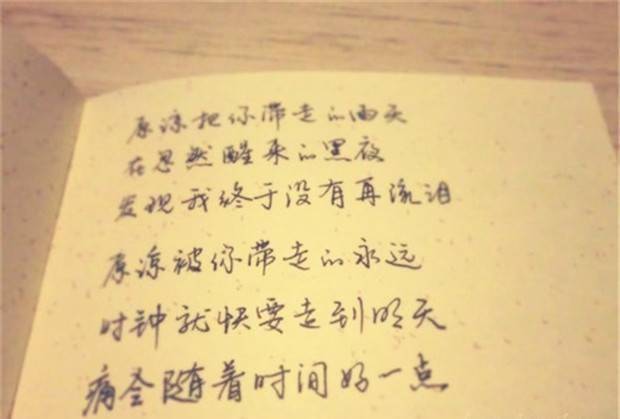 原谅把你带走的雨天
在忽然醒来的黑夜
发现我终于没有再流泪
原谅被你带走的永远
时钟就快要走到明天
痛会随着时间好一点